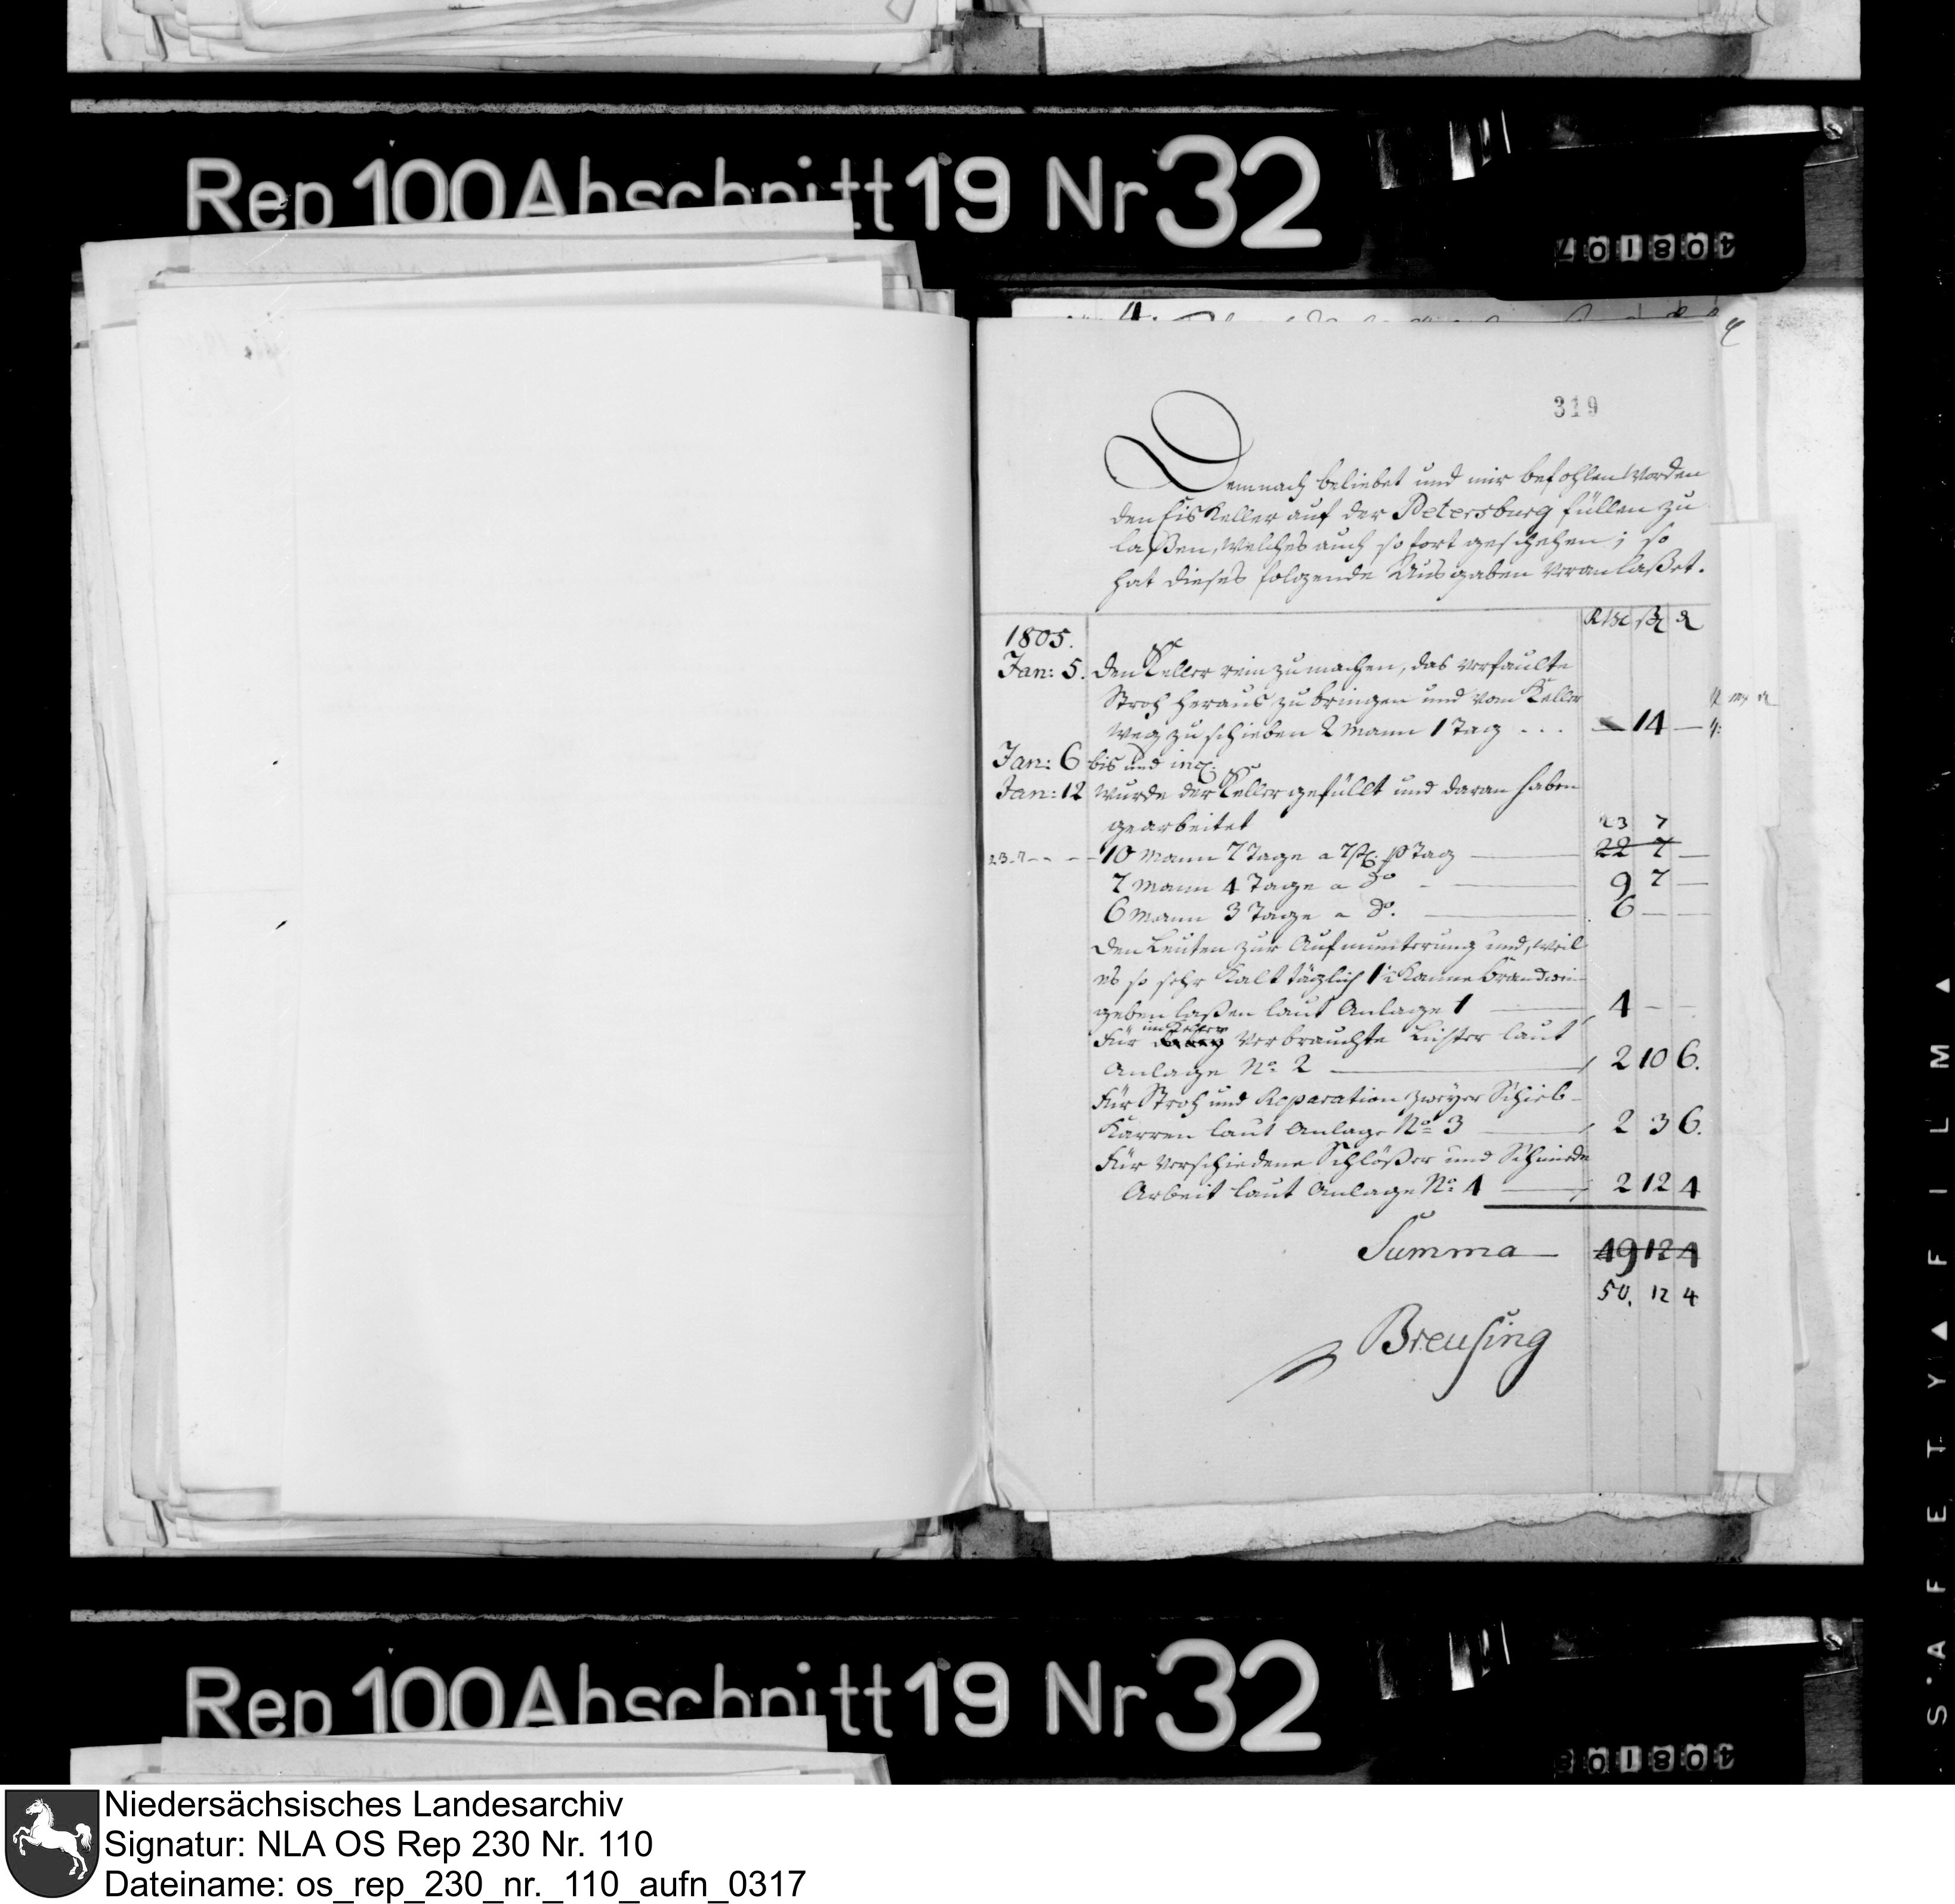 Rep 100 Abschnitt 19 Nr 32
319
Demnach beliebet und mir befohlen worden
den Eis Keller auf der Petersburg füllen zu
laßen, welches auch so fort geschehen; so
hat dieses folgende Ausgaben veranlaßet.
1805.
Jan: 5. den Keller rein zu machen, das verfaulte
Stroh heraus zu bringen und vom Keller
weg zu schieben 2 Mann 1 Tag ... — 14 —
Jan: 6 bis und incl:
Jan: 12 wurde der Keller gefüllt und daran haben
gearbeitet 23 7
23 - 7 - - - 10 Mann 7 Tage a 7 ß p Tag — 22 7 —
7 Mann 4 Tage a do - — 9 7 —
6 Mann 3 Tage a do. — 6 — —
den Leuten zur Aufmunterung und, weil
es so sehr kalt täglich 1½ Kanne Brandwein
geben laßen laut Anlage 1 — 4 — —
im Keller
Für verbrauchte Lichter laut
Anlage No 2 — 2 10 6.
Für Stroh und Reparation zweyer Schieb-
Karren laut Anlage No 3 — 2 3 6.
Für verschiedene Schlößer und Schmiede
Arbeit laut Anlage No 4 — 2 12 4
Summa — 49 12 4
50. 12 4
Breusing
Rep 100 Abschnitt 19 Nr 32
SAFETY FILM
Niedersächsisches Landesarchiv
Signatur: NLA OS Rep 230 Nr. 110
Dateiname: os_rep_230_nr._110_aufn_0317